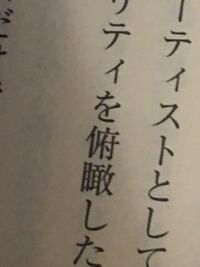 ーティストとして
リティを俯瞰した